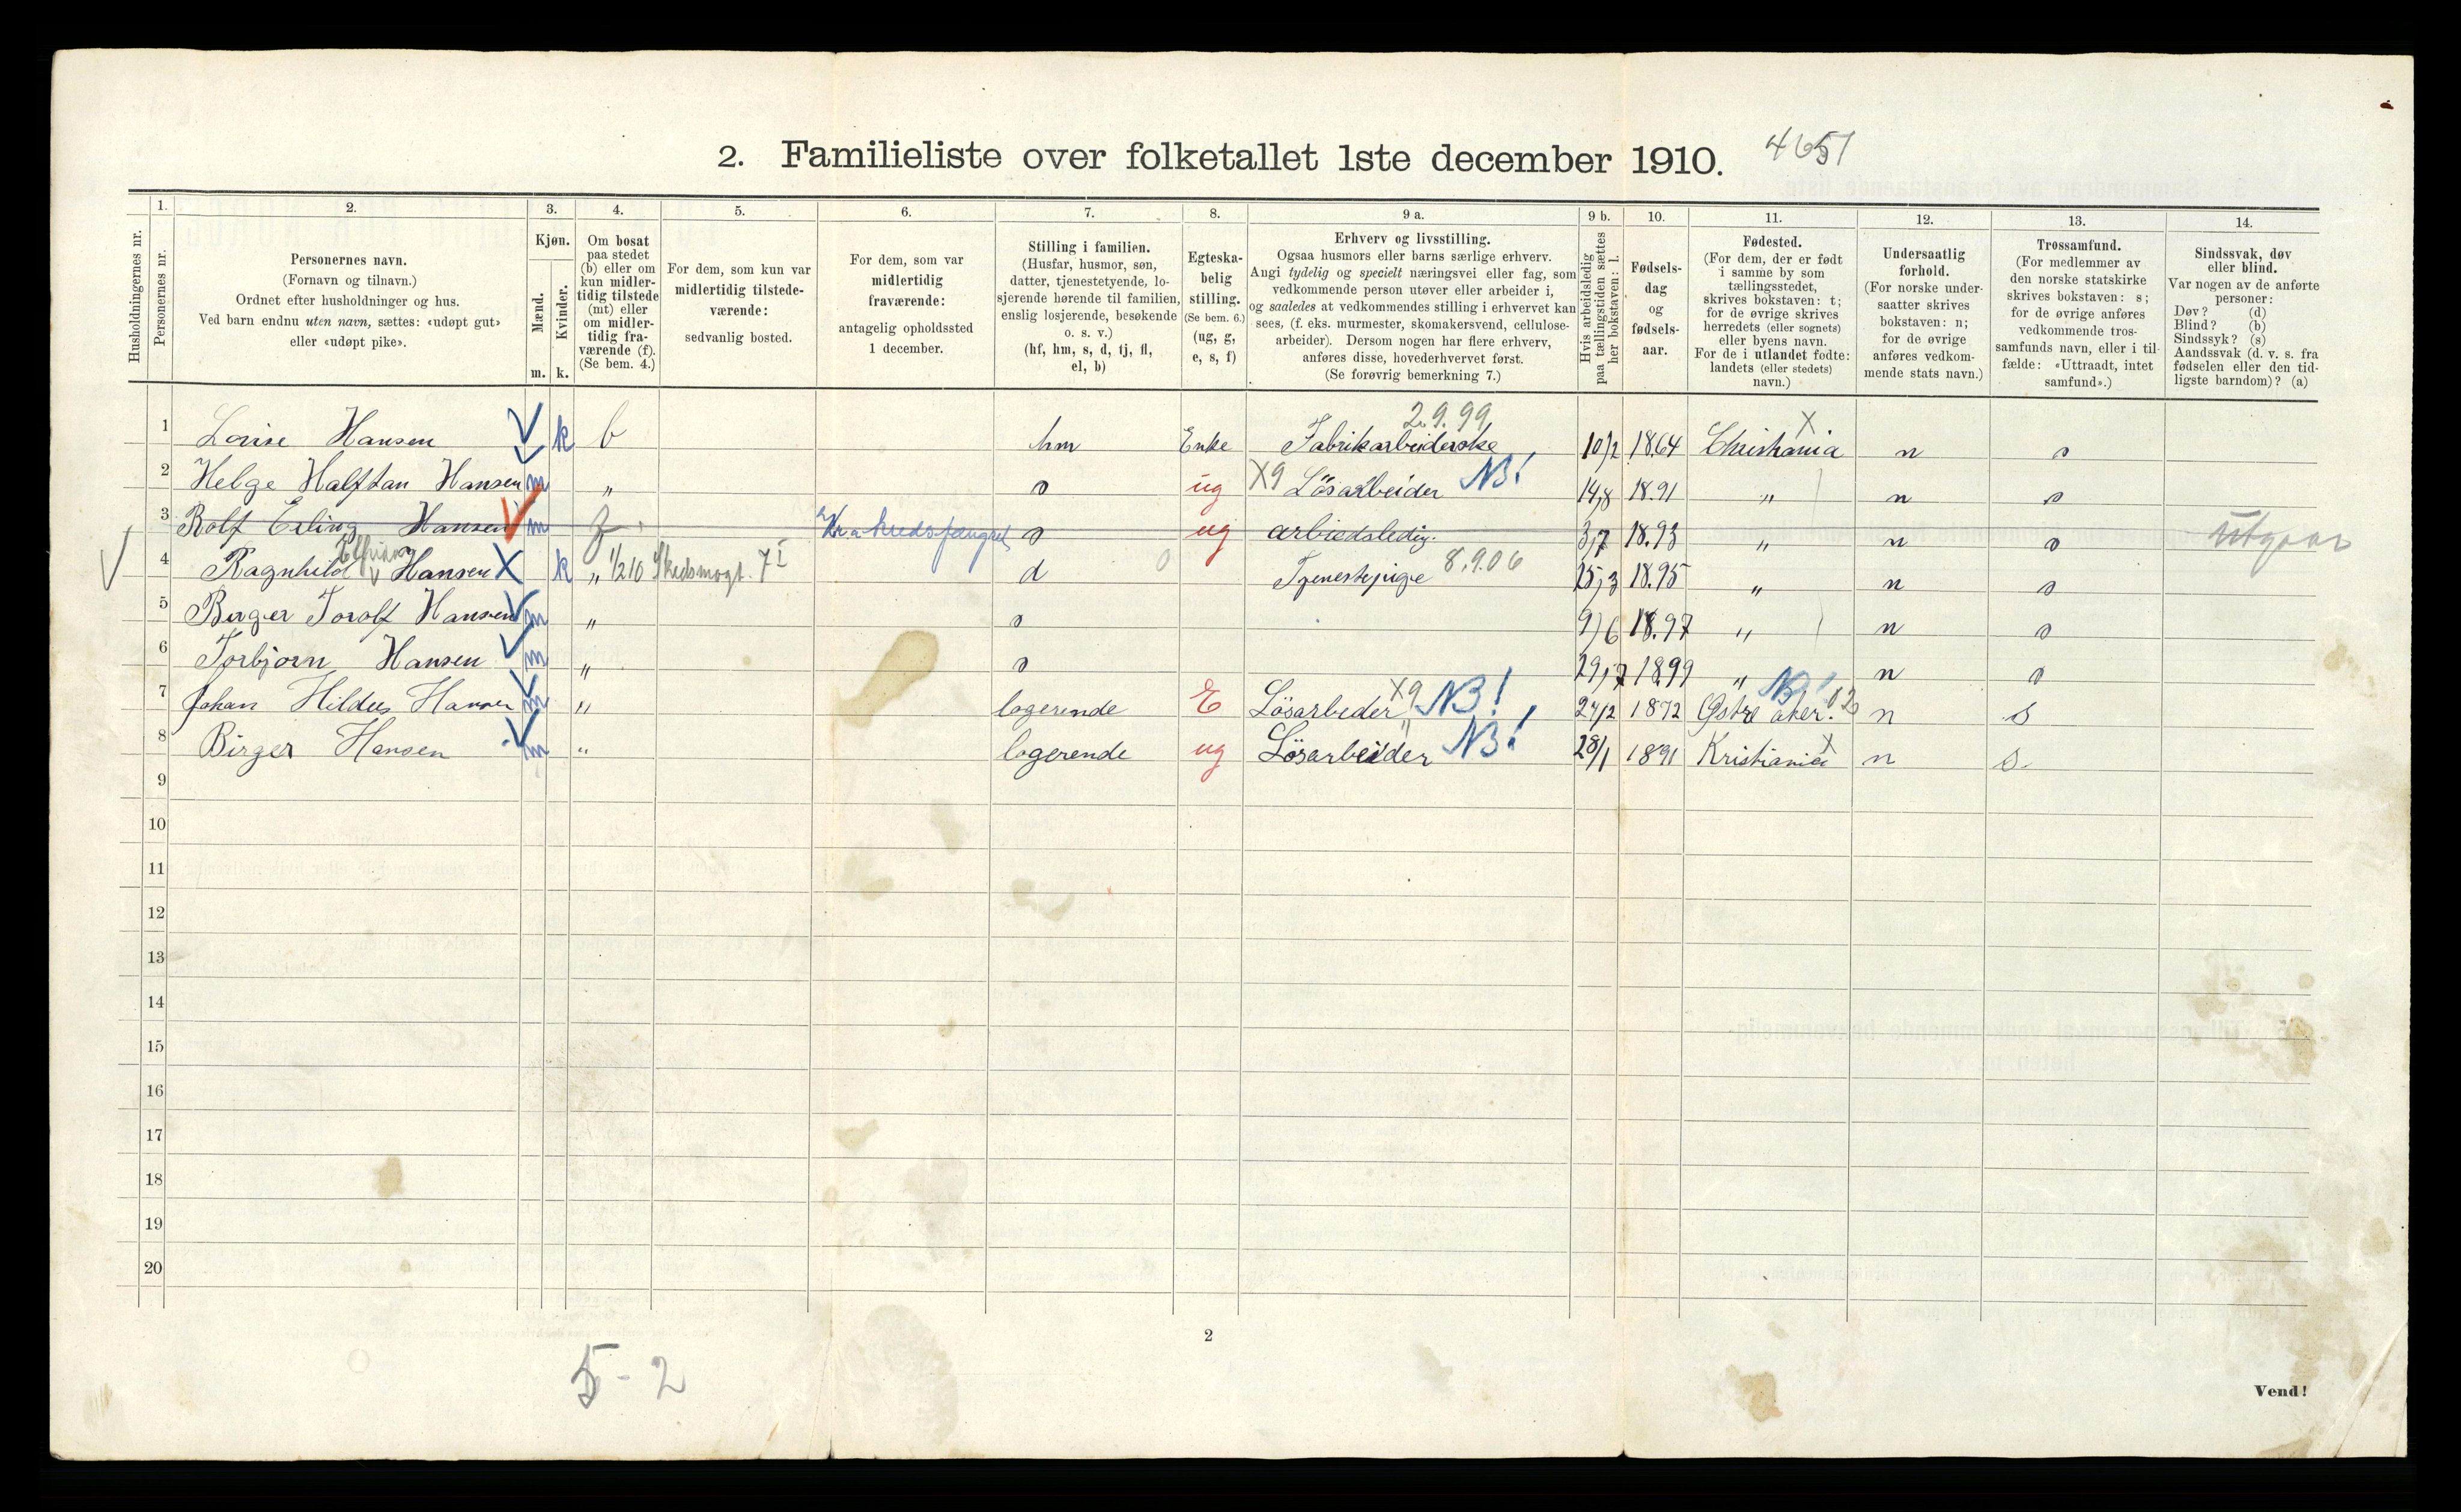 2. Familieliste over folketallet 1ste december 1910. 4651
1. 2. 3. 4. 5. 6. 7. 8. 9 a. 9 b. 10. 11. 12. 13. 14.
Husholdningernes nr.
Personernes nr.
Personernes navn.
(Fornavn og tilnavn.)
Ordnet efter husholdninger og hus.
Ved barn endnu uten navn, sættes: «udøpt gut»
eller «udøpt pike».
Kjøn.
Mænd.
Kvinder.
m. k.
Om bosat
paa stedet
(b) eller om
kun midler-
tidig tilstede
(mt) eller
om midler-
tidig fra-
værende (f).
(Se bem. 4.)
For dem, som kun var
midlertidig tilstede-
værende:
sedvanlig bosted.
For dem, som var
midlertidig
fraværende:
antagelig opholdssted
1 december.
Stilling i familien.
(Husfar, husmor, søn,
datter, tjenestetyende, lo-
sjerende hørende til familien,
enslig losjerende, besøkende
o. s. v.)
(hf, hm, s, d, tj, fl,
el, b)
Egteska-
belig
stilling.
(Se bem. 6.)
(ug, g,
e, s, f)
Erhverv og livsstilling.
Ogsaa husmors eller barns særlige erhverv.
Angi tydelig og specielt næringsvei eller fag, som
vedkommende person utøver eller arbeider i,
og saaledes at vedkommendes stilling i erhvervet kan
sees, (f. eks. murmester, skomakersvend, cellulose-
arbeider). Dersom nogen har flere erhverv,
anføres disse, hovederhvervet først.
(Se forøvrig bemerkning 7.)
Hvis arbeidsledig
paa tællingstiden sættes
her bokstaven: l.
Fødsels-
dag
og
fødsels-
aar.
Fødested.
(For dem, der er født
i samme by som
tællingsstedet,
skrives bokstaven: t;
for de øvrige skrives
herredets (eller sognets)
eller byens navn.
For de i utlandet fødte:
landets (eller stedets)
navn.)
Undersaatlig
forhold.
(For norske under-
saatter skrives
bokstaven: n;
for de øvrige
anføres vedkom-
mende stats navn.)
Trossamfund.
(For medlemmer av
den norske statskirke
skrives bokstaven: s;
for de øvrige anføres
vedkommende tros-
samfunds navn, eller i til-
fælde: «Uttraadt, intet
samfund».)
Sindssvak, døv
eller blind.
Var nogen av de anførte
personer:
Døv? (d)
Blind? (b)
Sindssyk? (s)
Aandssvak (d. v. s. fra
fødselen eller den tid-
ligste barndom)? (a)
2.9.99 X
1 Lovise Hansen k b hm Enke Fabrikarbeiderske 10/2 1864 Christiania n s
2 Helge Halftan Hansen m " s ug X9 Lösarbeider NB! 14/8 18.91 " n s
3 Rolf Erling Hansen m f Kra kredsfængsel s ug arbiedsledig. 3/7 18.93 " n s Utgaar
4 Ragnhild Hansen X k " 1/2 10 Skedsmogt. 7 I 0 d Tjenestepige 8.9.06 25/3 18.95 " n s
5 Birger Torolf Hansen m " s 9/6 18.97 " n s
6 Torbjørn Hansen m " s 29/7 1899 " n s
7 Johan Hildus Hansen m " logerende E Lösarbeder X9 NB! 24/2 1872 Østre aker. NB! n s
8 Birger Hansen m " logerende ug Lösarbeider NB! 28/1 1891 Kristiania X n s.
9
10
11
12
13
14
15
16
17
18
19
20
2
5 - 2
Vend!